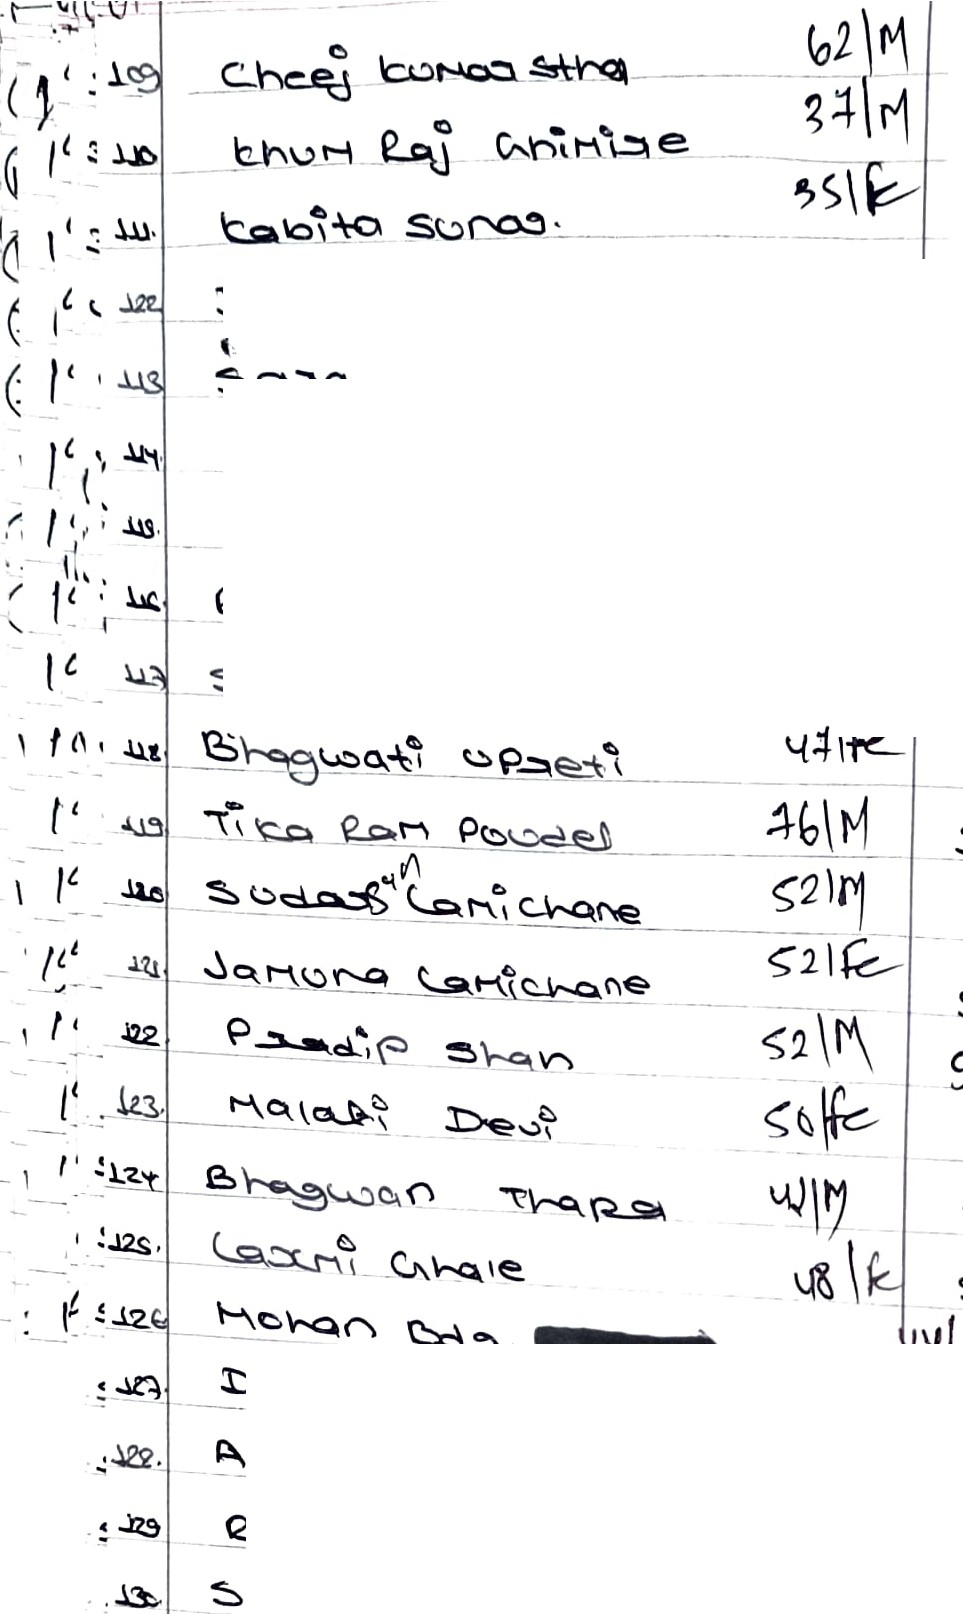 109 Cheej kumar stha 62/M
110 khum Raj Ghimire 37/M
111. kabita sunar. 35/Fe
122
113
114.
115.
116.
117 S
118. Bhagwati upreti 47/Fe
119 Tika Ram Poudel 76/M
120 Sudarsan Lamichane 52/M
121. Jamuna Lamichane 52/Fe
122. Pradip Shah 52/M
123. Malati Devi 50/Fe
124 Bhagwan Thapa 42/M
125. Laxmi Ghale 48/Fe
126 Mohan Bda
127. I
128. A
129 R
130. S